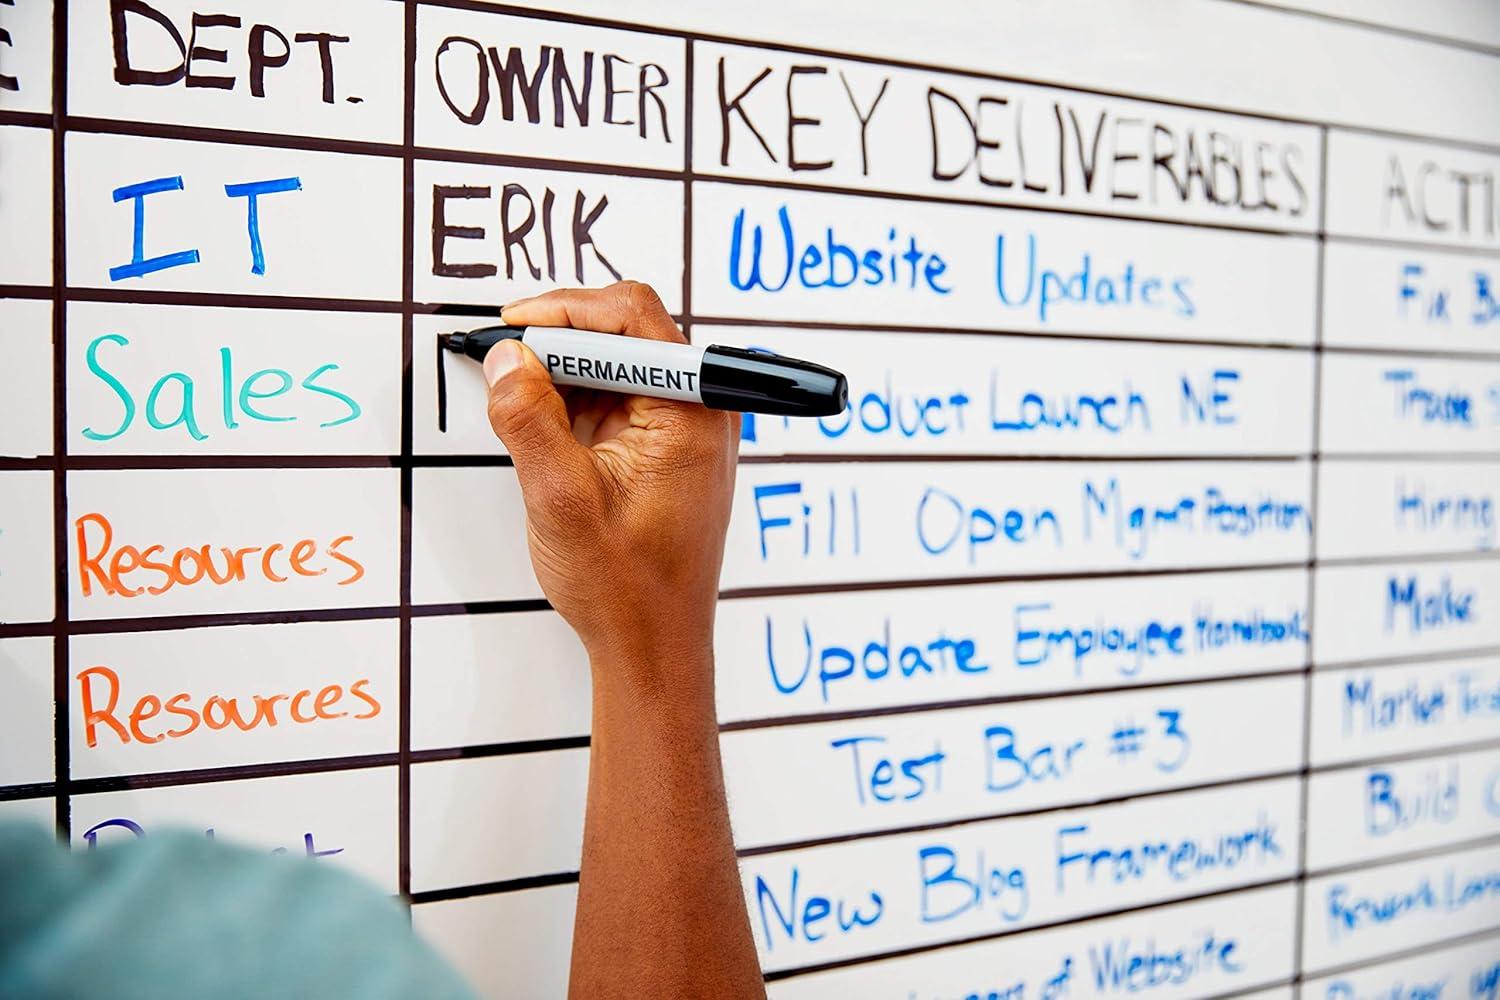 DEPT. OWNER KEY DELIVERABLES
IT ERIK Website Updates Fix
Sales Product Launch NE Trade
PERMANENT
Resources Fill Open Mgmt Position Hiring
Resources Update Employee Handbook Make
Test Bar #3 Market
New Blog Framework Build
of Website Rework